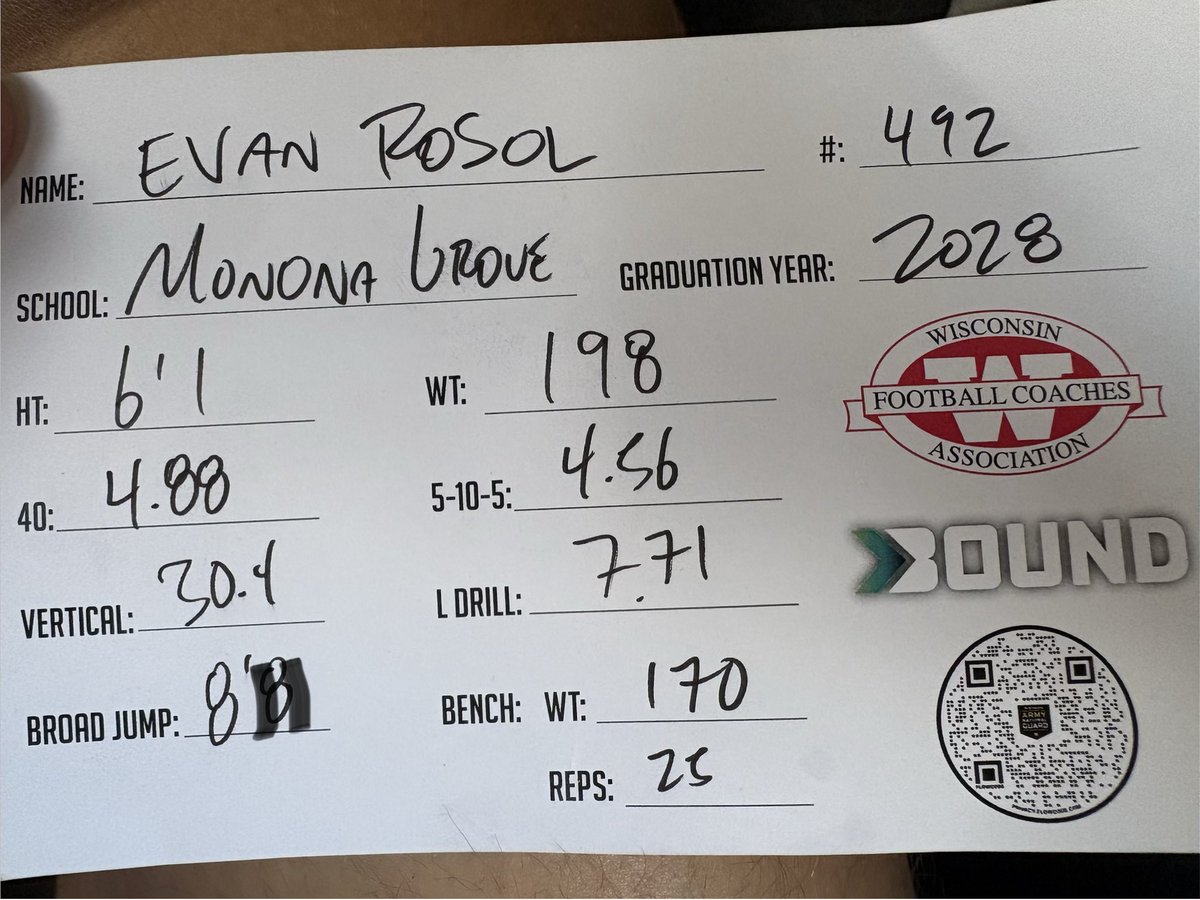 NAME: EVAN ROSOL #: 492
SCHOOL: MONONA GROVE GRADUATION YEAR: 2028
HT: 6'1 WT: 198
WISCONSIN
FOOTBALL COACHES
ASSOCIATION
40: 4.88 5-10-5: 4.56
VERTICAL: 30.4 L DRILL: 7.71
BOUND
BROAD JUMP: 8'8 BENCH: WT: 170
REPS: 25
ARMY
NATIONAL
GUARD